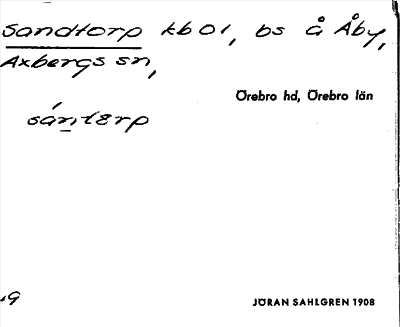 Sandtorp kb 01, bs å Åby,
Axbergs sn,
Örebro hd, Örebro län
sántɛrp
JÖRAN SAHLGREN 1908